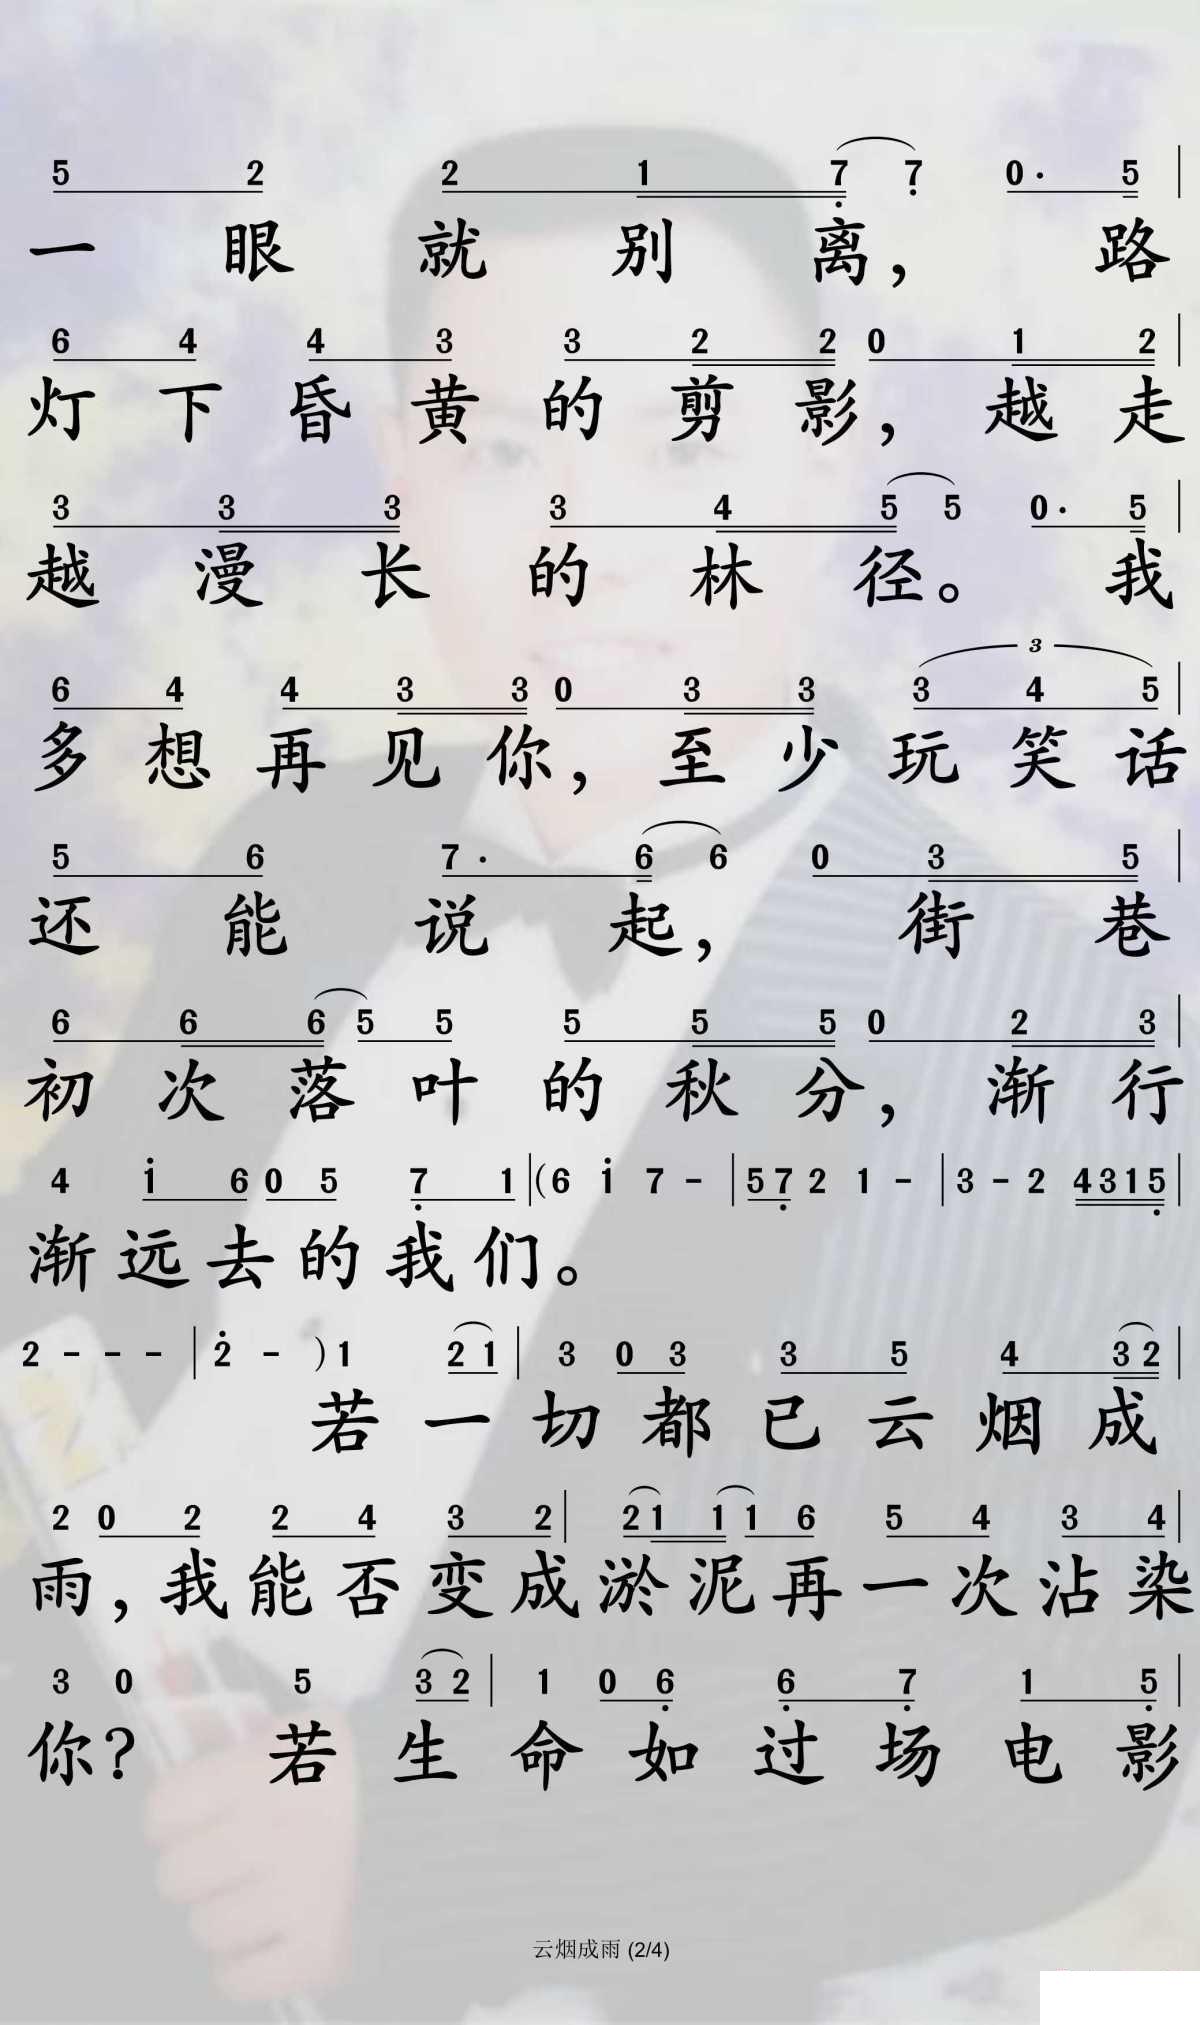 5 2 2 1 7 7 0· 5 |
一眼就别离，路
6 4 4 3 3 2 2 0 1 2 |
灯下昏黄的剪影，越走
3 3 3 3 4 5 5 0· 5 |
越漫长的林径。我
3
6 4 4 3 3 0 3 3 3 4 5 |
多想再见你，至少玩笑话
5 6 7· 6 6 0 3 5 |
还能说起，街巷
6 6 6 5 5 5 5 5 0 2 3 |
初次落叶的秋分，渐行
4 1 6 0 5 7 1 | (6 1 7 - | 5 7 2 1 - | 3 - 2 4 3 1 5 |
渐远去的我们。
2 - - - | 2 - ) 1 2 1 | 3 0 3 3 5 4 3 2 |
若一切都已云烟成
2 0 2 2 4 3 2 | 2 1 1 1 6 5 4 3 4 |
雨，我能否变成淤泥再一次沾染
3 0 5 3 2 | 1 0 6 6 7 1 5 |
你？若生命如过场电影
云烟成雨 (2/4)